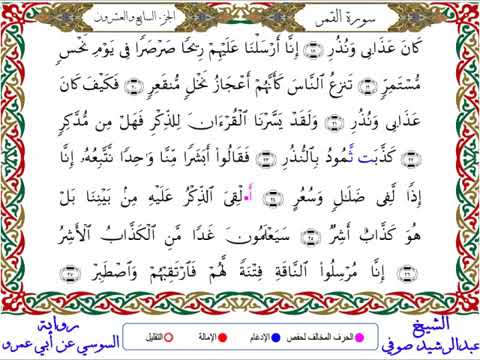 سورة القمر
الجزء السابع والعشرون
كَانَ عَذَابِى وَنُذُرِ ۝١٨ إِنَّا أَرْسَلْنَا عَلَيْهِمْ رِيحًا صَرْصَرًا فِى يَوْمِ نَحْسٍ
مُّسْتَمِرٍّ ۝١٩ تَنزِعُ النَّاسَ كَأَنَّهُمْ أَعْجَازُ نَخْلٍ مُّنقَعِرٍ ۝٢٠ فَكَيْفَ كَانَ
عَذَابِى وَنُذُرِ ۝٢١ وَلَقَد يَّسَّرْنَا الْقُرْءَانَ لِلذِّكْرِ فَهَلْ مِن مُّدَّكِرٍ
۝٢٢ كَذَّبَت ثَّمُودُ بِالنُّذُرِ ۝٢٣ فَقَالُوا أَبَشَرًا مِّنَّا وَاحِدًا نَّتَّبِعُهُ إِنَّا
إِذًا لَّفِى ضَلَٰلٍ وَسُعُرٍ ۝٢٤ أَ•لْقِىَ الذِّكْرُ عَلَيْهِ مِنْ بَيْنِنَا بَلْ
هُوَ كَذَّابٌ أَشِرٌ ۝٢٥ سَيَعْلَمُونَ غَدًا مَّنِ الْكَذَّابُ الْأَشِرُ
۝٢٦ إِنَّا مُرْسِلُوا النَّاقَةِ فِتْنَةً لَّهُمْ فَارْتَقِبْهُمْ وَاصْطَبِرْ ۝٢٧
الشيخ
عبدالرشيد صوفي
الحرف المخالف لحفص
الإدغام
الإمالة
التقليل
رواية
السوسي عن أبي عمرو